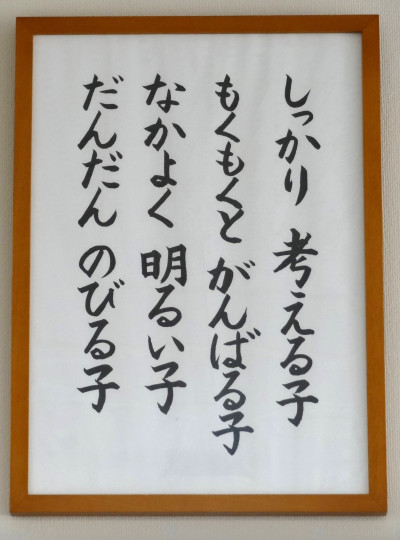 しっかり 考える子
もくもくと がんばる子
なかよく 明るい子
だんだん のびる子